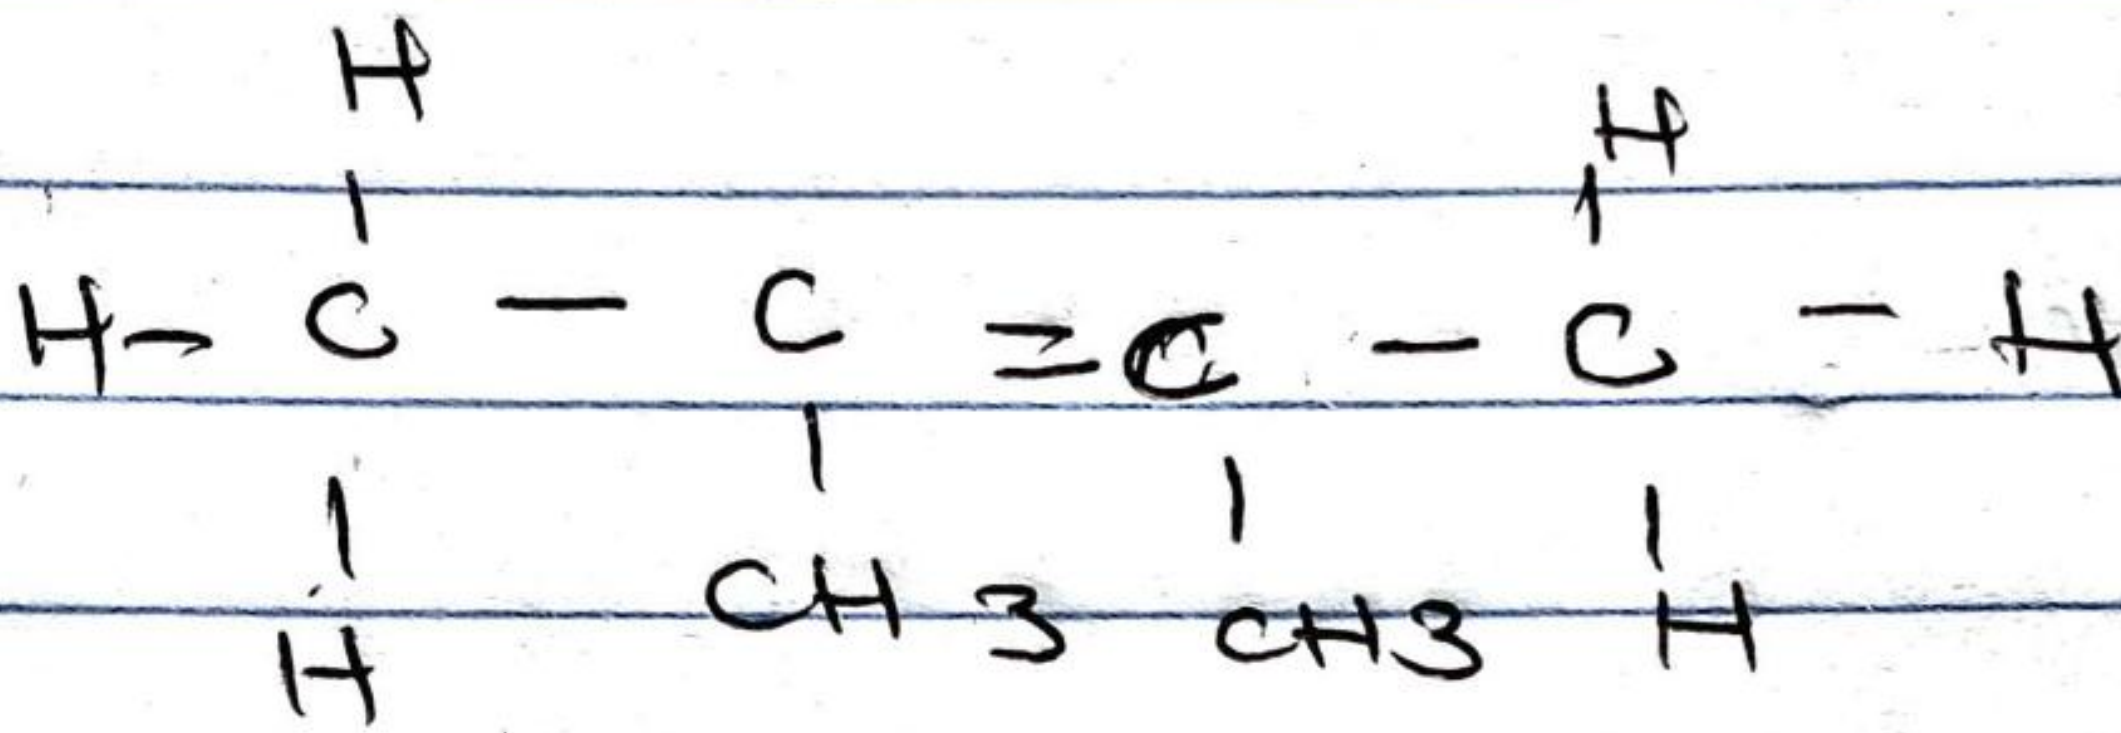 H H
| |
H - C - C = C - C - H
| | | |
H CH3 CH3 H